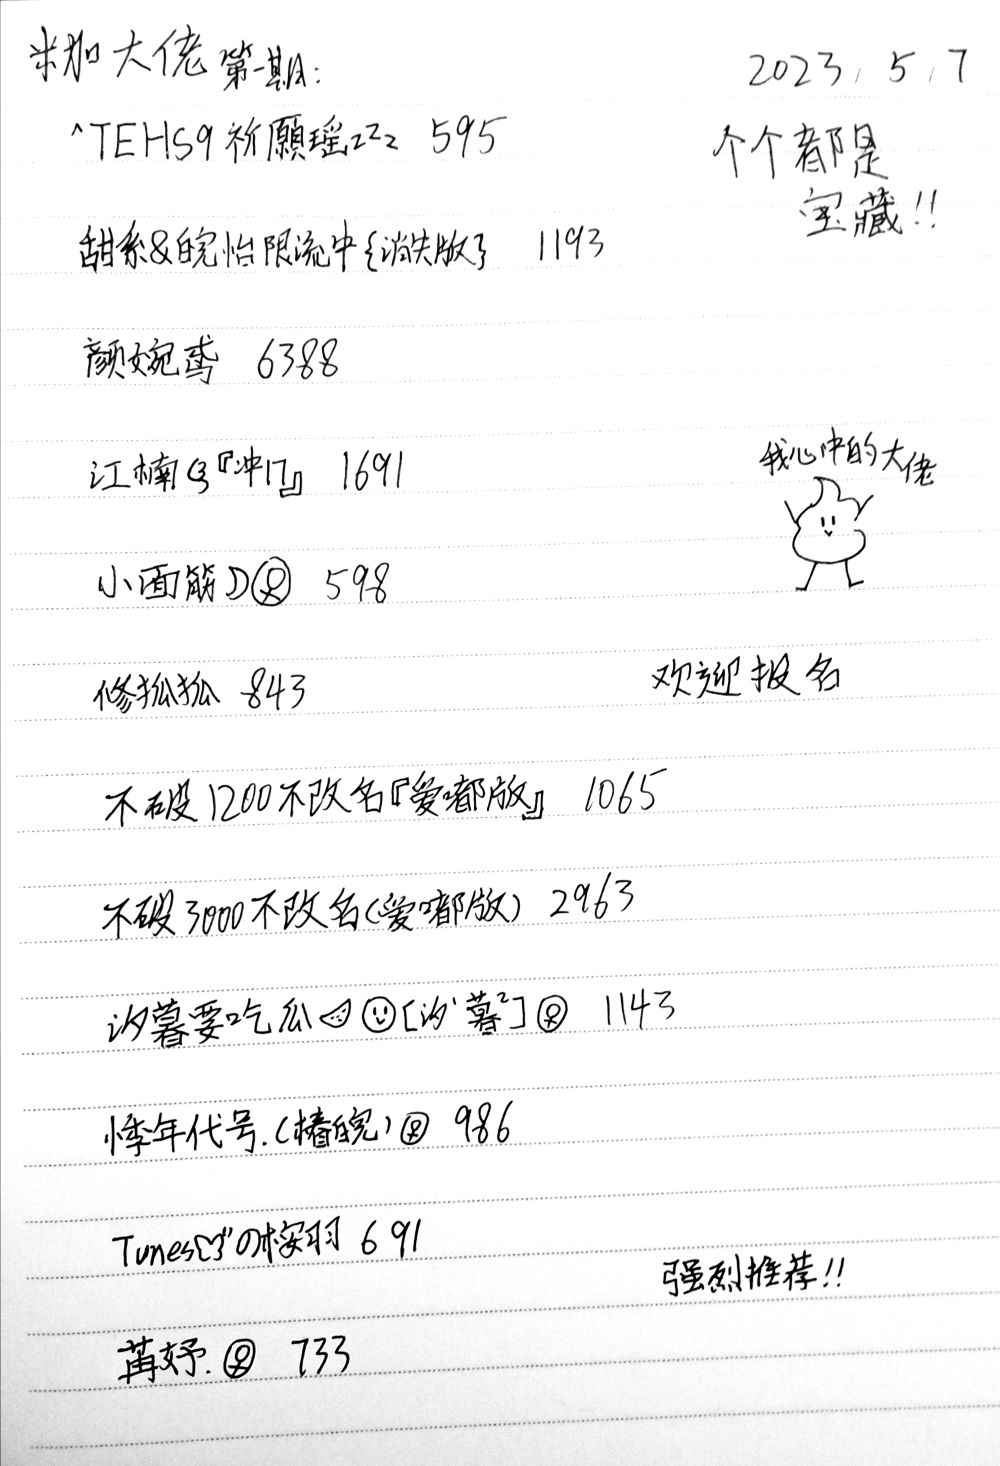 米加大佬第一期:
2023.5.7
^TEHS9祈願瑶zzz 595
个个都是
宝藏!!
甜系&皖怡限流中{消失版} 1193
颜婉鸢 6388
江楠『冲17』 1691
我心中的大佬
小面筋D 598
修狐狐 843
欢迎报名
不破1200不改名『爱嘟版』 1065
不破3000不改名(爱嘟版) 2963
汐暮要吃瓜[汐¹暮²] 1143
悸年代号.(椿皖) 986
Tunesの桉羽 691
强烈推荐!!
苒妤. 733